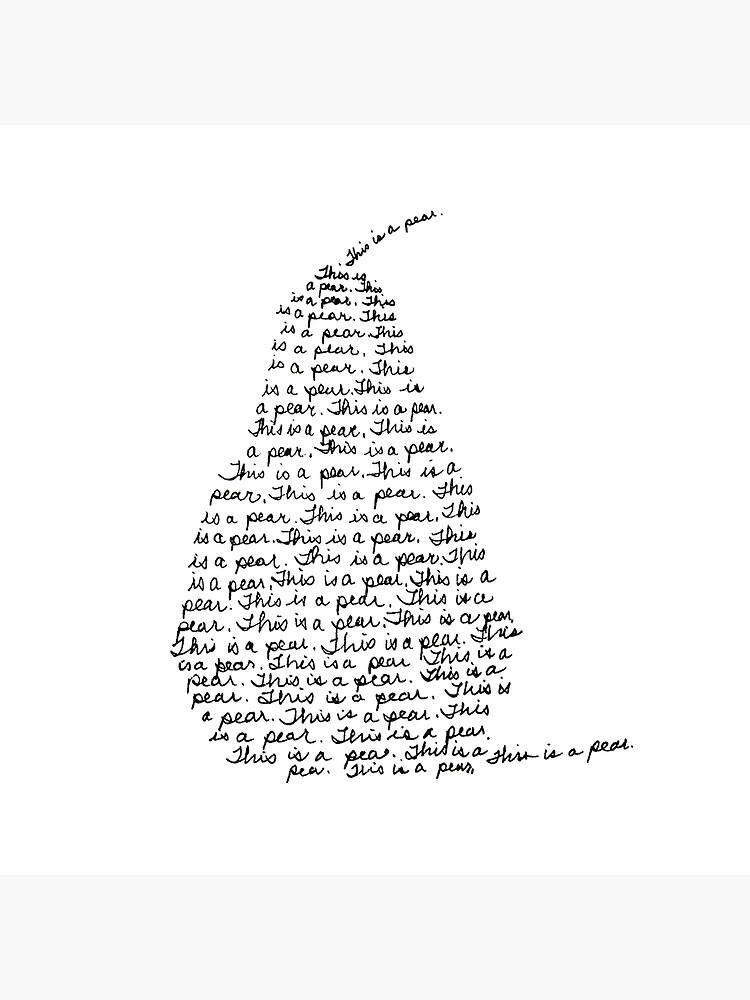 This is a pear.
This is
a pear. This
is a pear. This
is a pear. This
is a pear. This
is a pear. This
is a pear. This
is a pear. This is
a pear. This is a pear.
This is a pear. This is
a pear. This is a pear.
This is a pear. This is a
pear. This is a pear. This
is a pear. This is a pear. This
is a pear. This is a pear. This
is a pear. This is a pear. This
is a pear. This is a pear. This is a
pear. This is a pear. This is a
pear. This is a pear. This is a pear.
This is a pear. This is a pear. This
is a pear. This is a pear This is a
pear. This is a pear. This is a
pear. This is a pear. This is
a pear. This is a pear. This
is a pear. This is a pear.
This is a pear. This is a This is a pear.
pear. This is a pear.